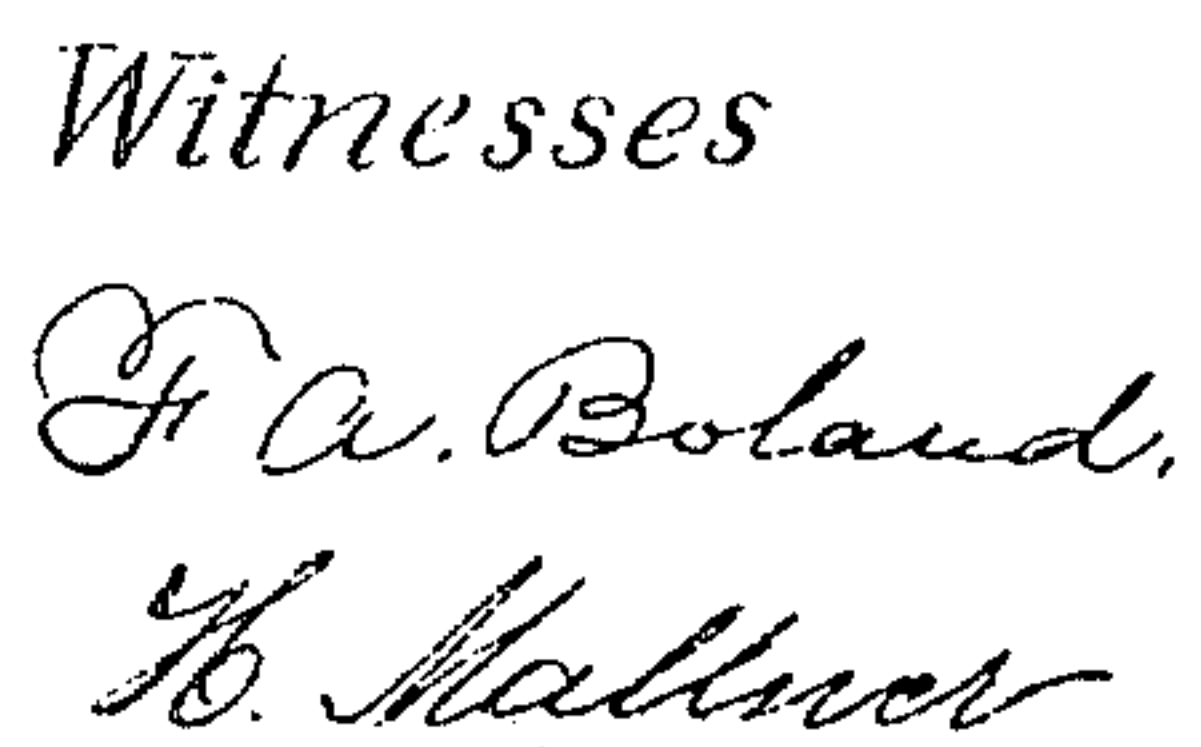 Witnesses
F. A. Boland.
H. Mallner